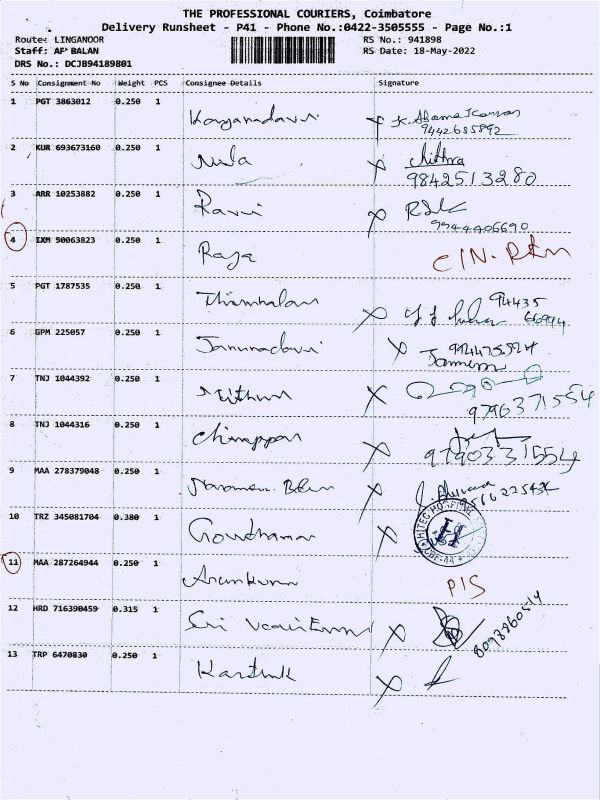 THE PROFESSIONAL COURIERS, Coimbatore
Delivery Runsheet - P41 - Phone No.:0422-3505555 - Page No.:1
Route: LINGANOOR RS No.: 941898
Staff: AF BALAN RS Date: 18-May-2022
DRS No.: DCJB94189801
S No Consignment No Weight PCS Consignee Details Signature
1 PGT 3863012 0.250 1
9442685892
2 KUR 693673160 0.250 1 Mula Chithra
9842513280
3 ARR 10253882 0.250 1 Ravi
9944406690
4 IXM 50063823 0.250 1 Raja
5 PGT 1787535 0.250 1 94435
66994
6 GPM 225057 0.250 1
7 TNJ 1044392 0.250 1 Mithun
9796371554
8 TNJ 1044316 0.250 1 Chinappan
9790331554
9 MAA 278379048 0.250 1
10 TRZ 345081704 0.380 1 Gowdhaman HITEC HOSPITAL
11 MAA 287264944 0.250 1 Arunkumar P/S
12 HRD 716390459 0.315 1 Sri
13 TRP 6470830 0.250 1 Karthik